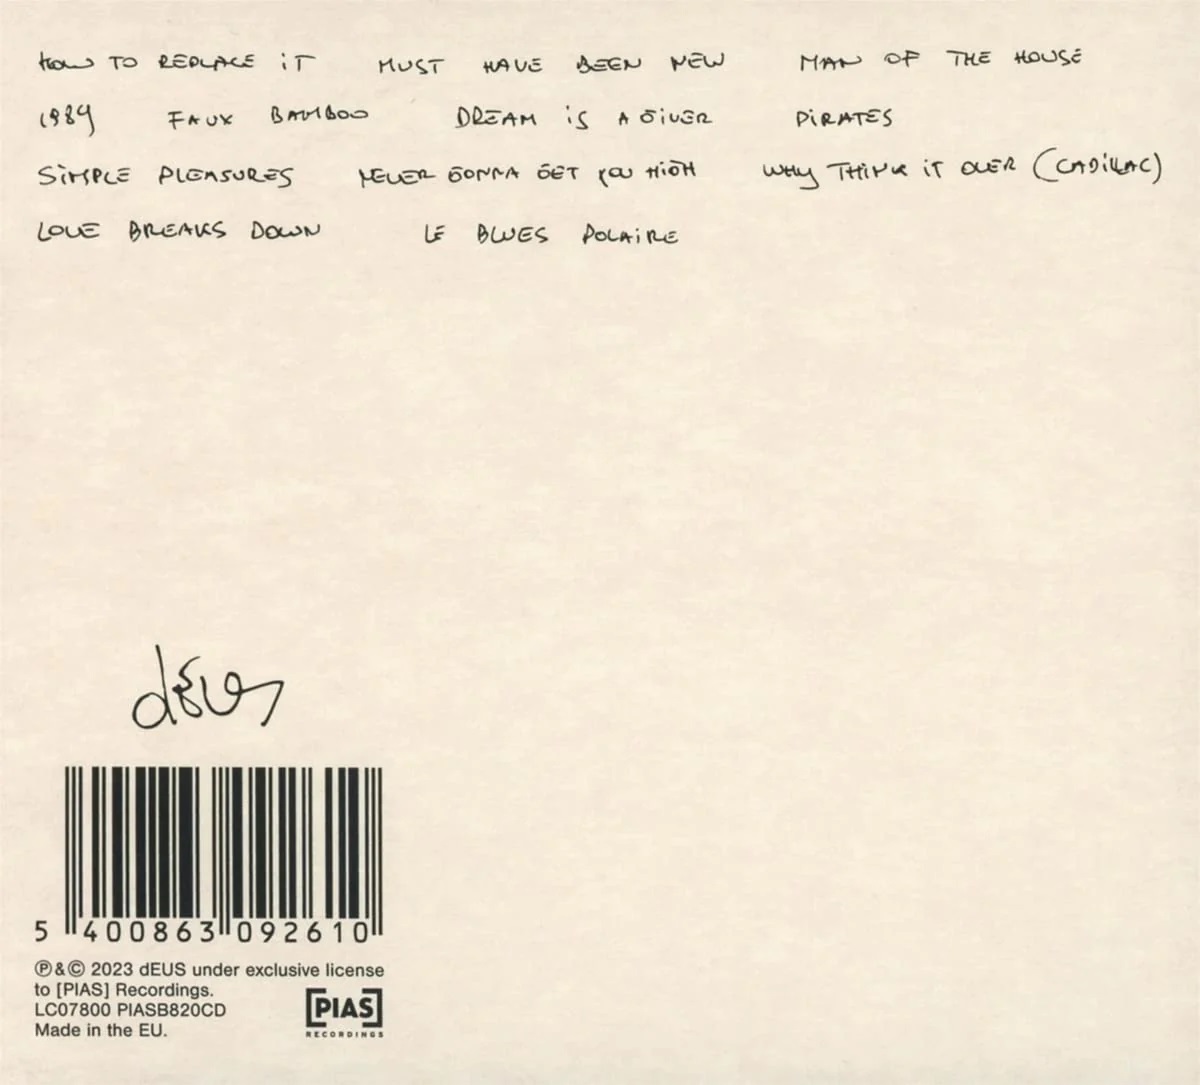 HOW TO REPLACE iT MUST HAVE BEEN NEW MAN OF THE HOUSE
1989 FAUX BAMBOO DREAM iS A GiVER PiRATES
SiMPLE PLEASURES NEVER GONNA GET YOU HiGH WHY THiNK iT OVER (CADiLLAC)
LOVE BREAKS DOWN LE BLUES POLAiRE
dEUS
5 400863 092610
℗&© 2023 dEUS under exclusive license
to [PIAS] Recordings.
LC07800 PIASB820CD
Made in the EU.
[PIAS]
RECORDINGS